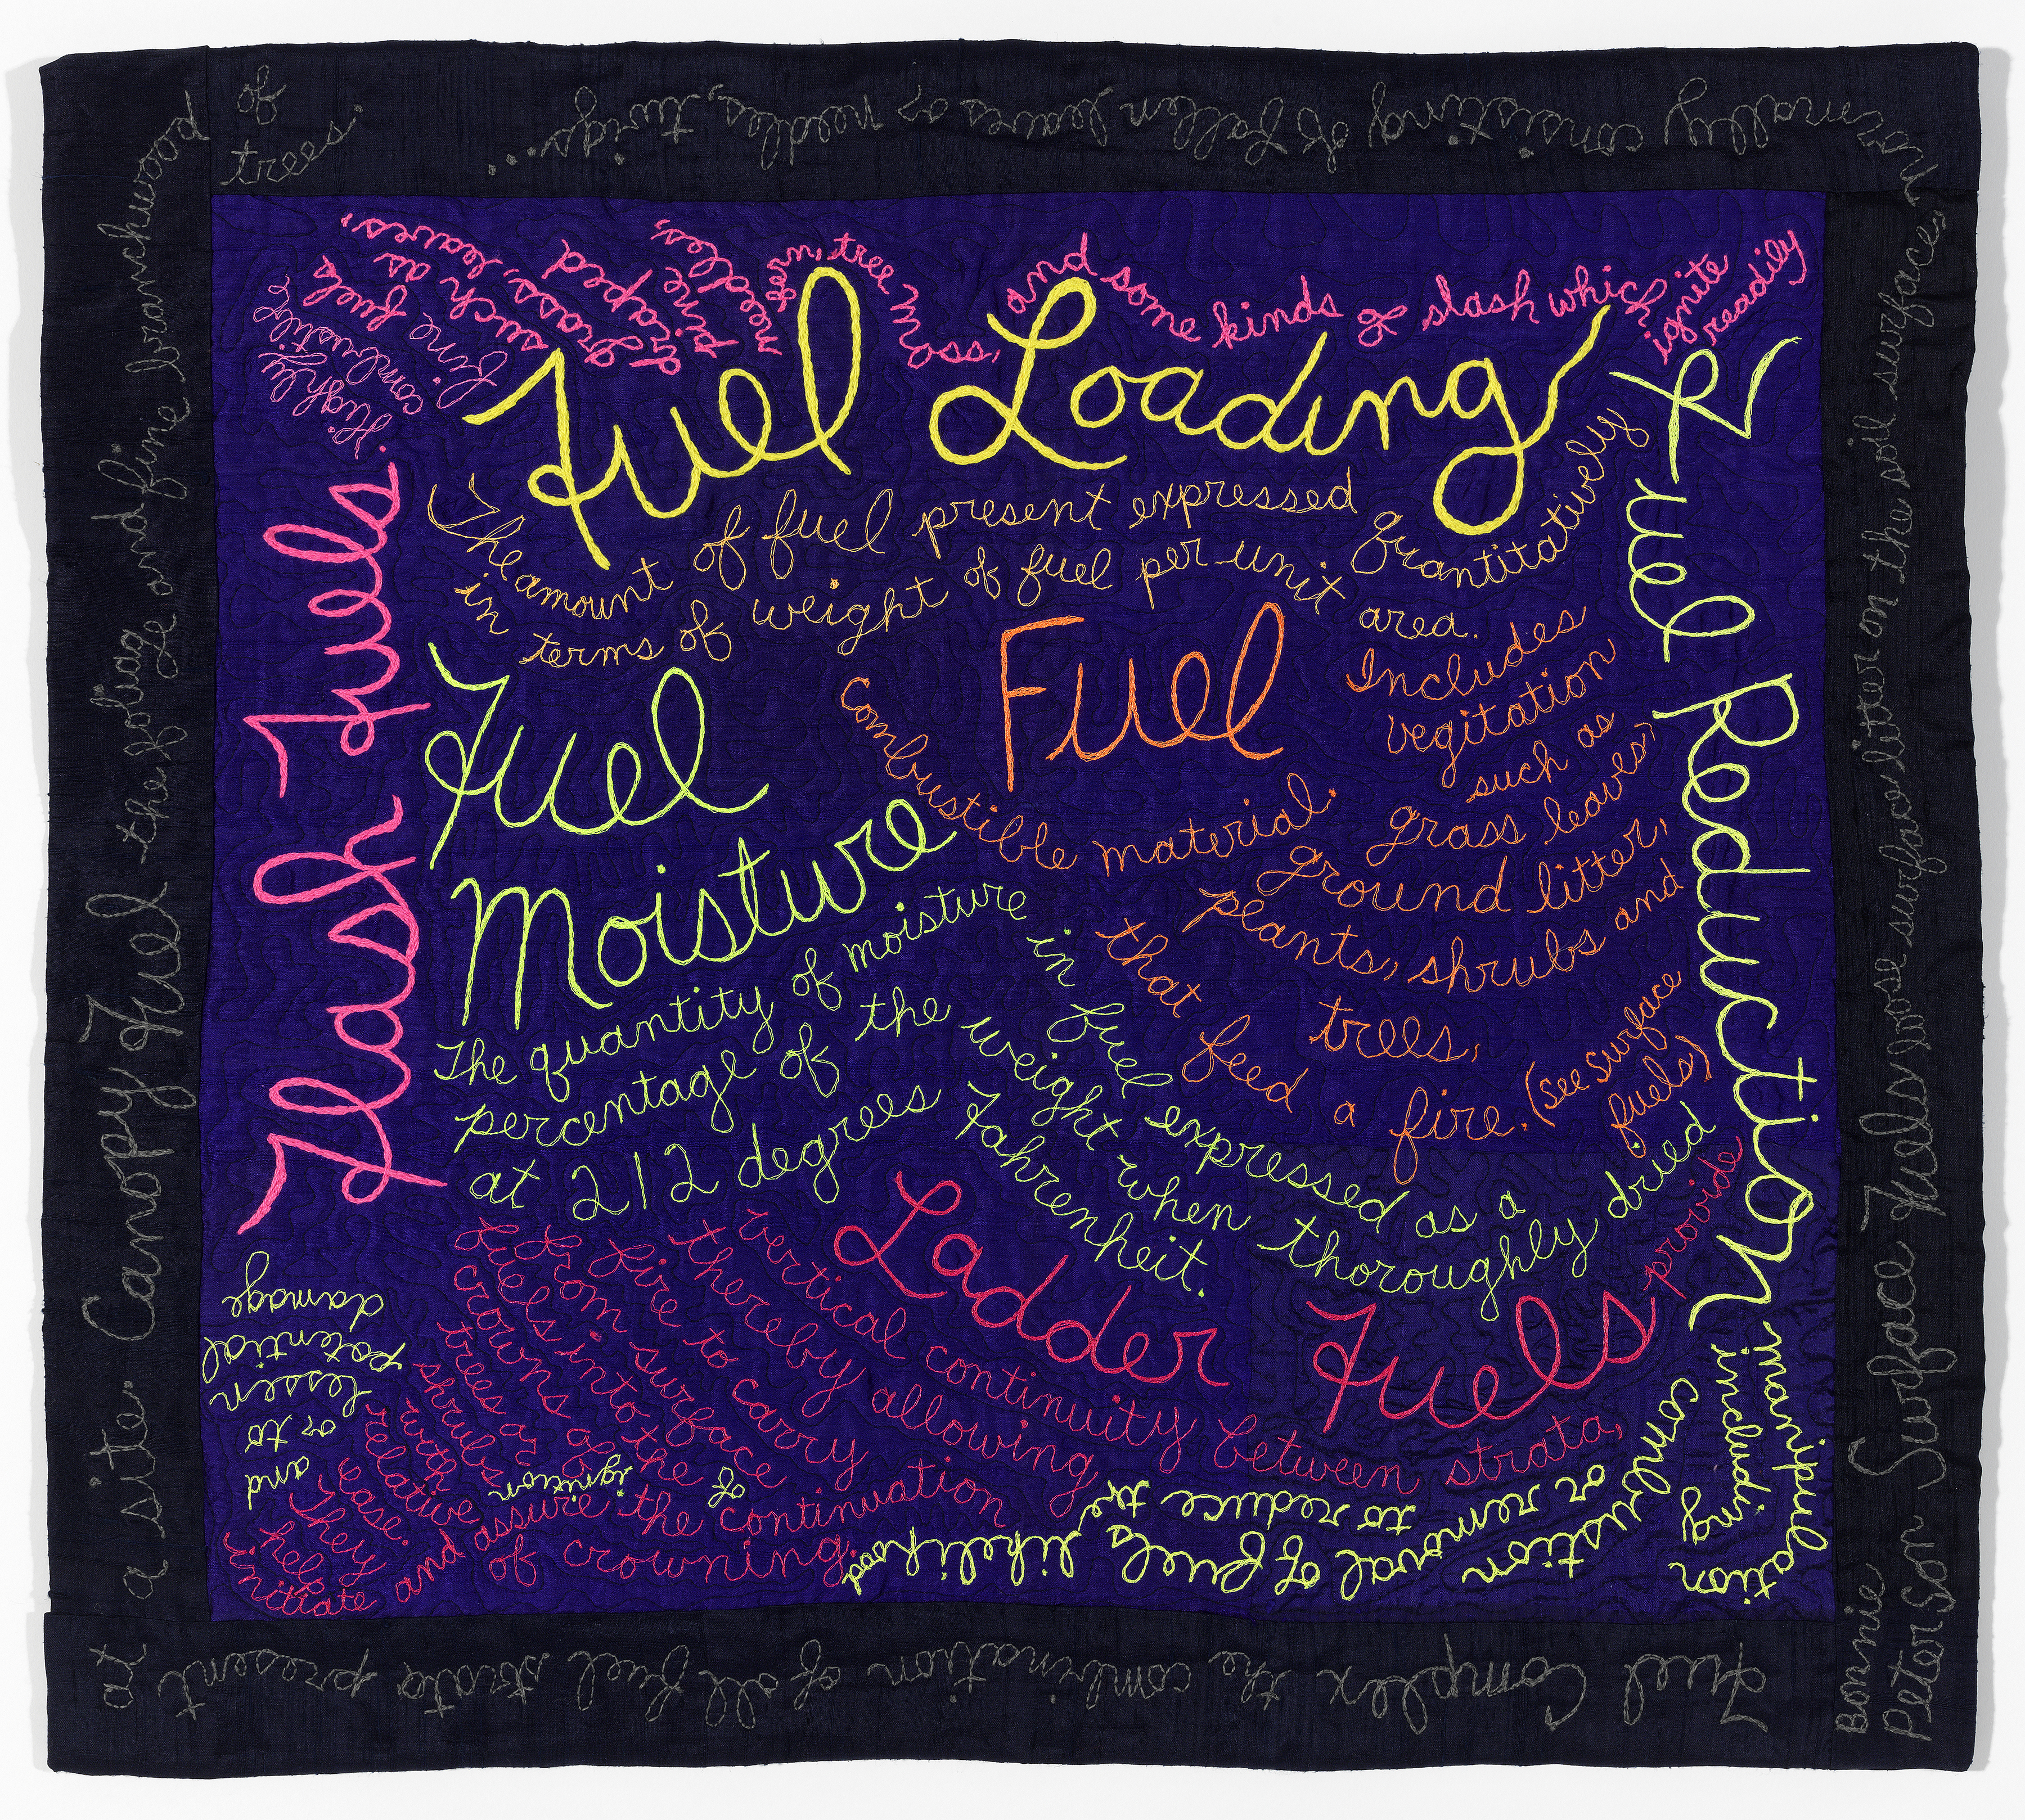 Fuel Loading
The amount of fuel present expressed quantitatively
in terms of weight of fuel per unit area.
Fuel
Combustible material.
Includes
vegitation
such as
grass leaves,
ground litter,
plants, shrubs and
trees,
that feed a fire. (see surface
fuels)
Fuel
Moisture
The quantity of moisture in fuel expressed as a
percentage of the weight when thoroughly dried
at 212 degrees Fahrenheit.
Ladder Fuels provide
vertical continuity between strata,
thereby allowing
fire to carry
from surface
fuels into the
crowns of
trees or
shrubs
with
relative
ease.
They
help
initiate and assure the continuation
of crowning.
Flash Fuels.
Highly
combustible
fine fuels
such as
grass, leaves,
draped
pine
needles,
fern, tree moss, and some kinds of slash which
ignite
readily
Fuel Reduction
manipulation
including
combustion
or removal of fuels
to reduce the
likelihood
of
ignition
and
or to
lessen
potential
damage
Canopy Fuel the foliage and fine branchwood
of
trees.
Surface Fuels loose surface litter on the soil surface,
normally consisting of fallen leaves or needles, twigs...
Fuel Complex the combination of all fuel strata present
at
a site.
Bonnie
Peterson